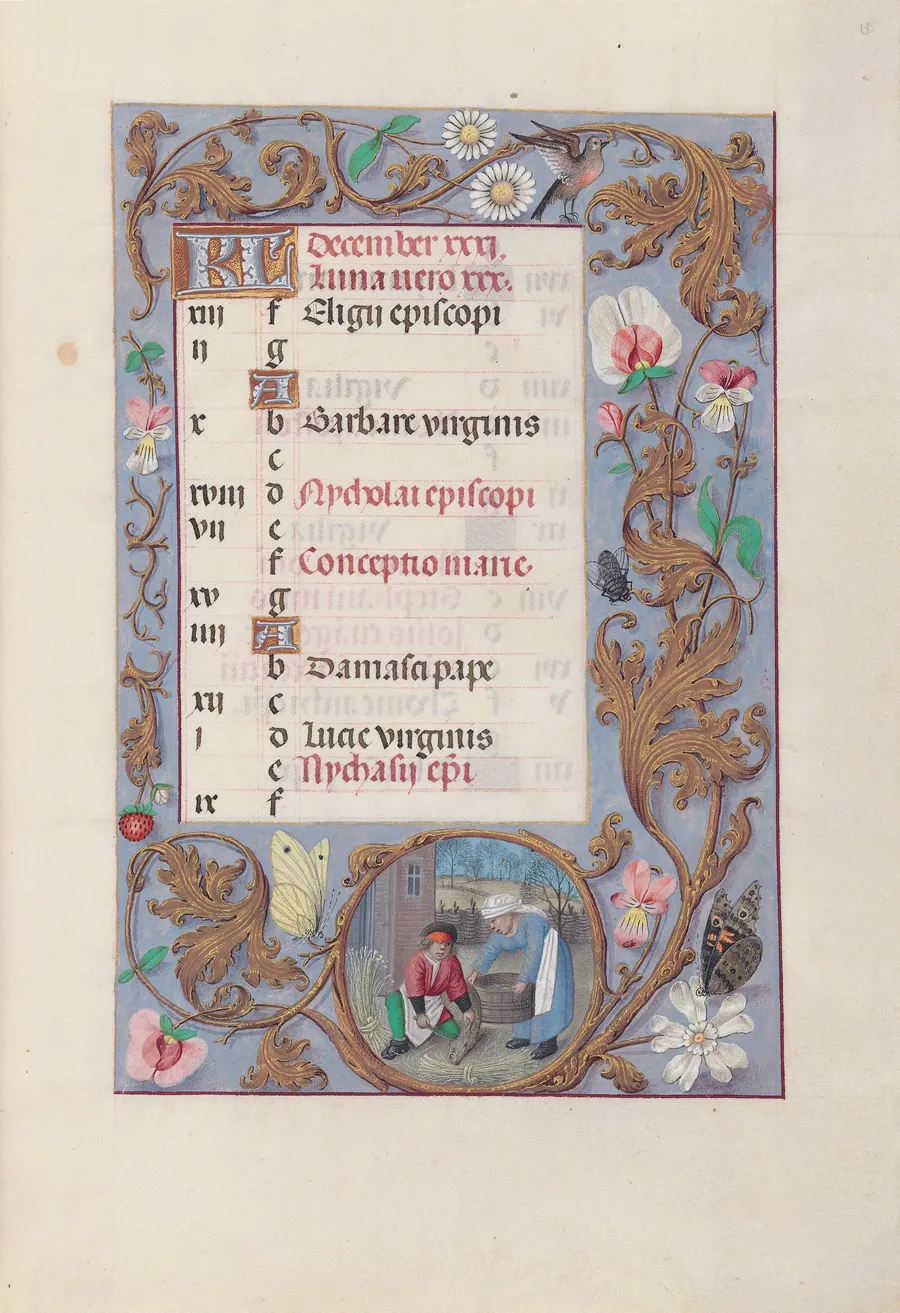 13
KL December xxxi.
Luna vero xxx.
xiii f Eligii episcopi
ii g
A
x b Barbare virginis
c
xviii d Nycholai episcopi
vii e
f Conceptio marie
xv g
iiii A
b Damasci pape
xii c
i d Lucie virginis
e Nychasii epi
ix f